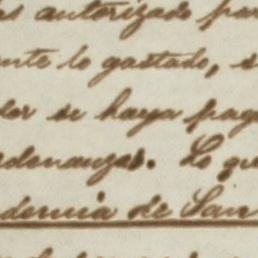 es autorizado par
ente lo gastado, s
dor se haya pag
rdenanzas. Lo qu
demia de San